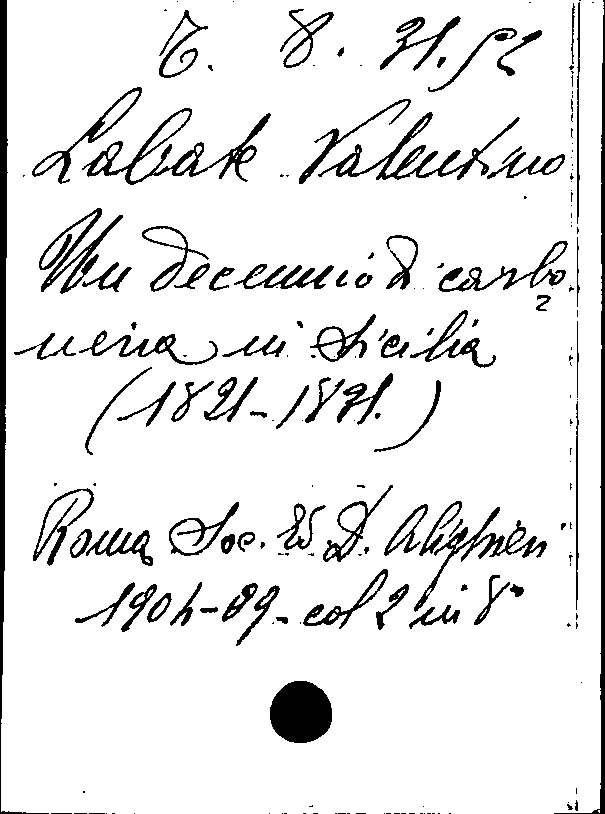 8. 31.
Labate Valentino
Un decennio di carbo
neria in Sicilia
(1821-1831.)
Roma Soc. Ed. D. Alighieri
1904-09- col 2 in 8°